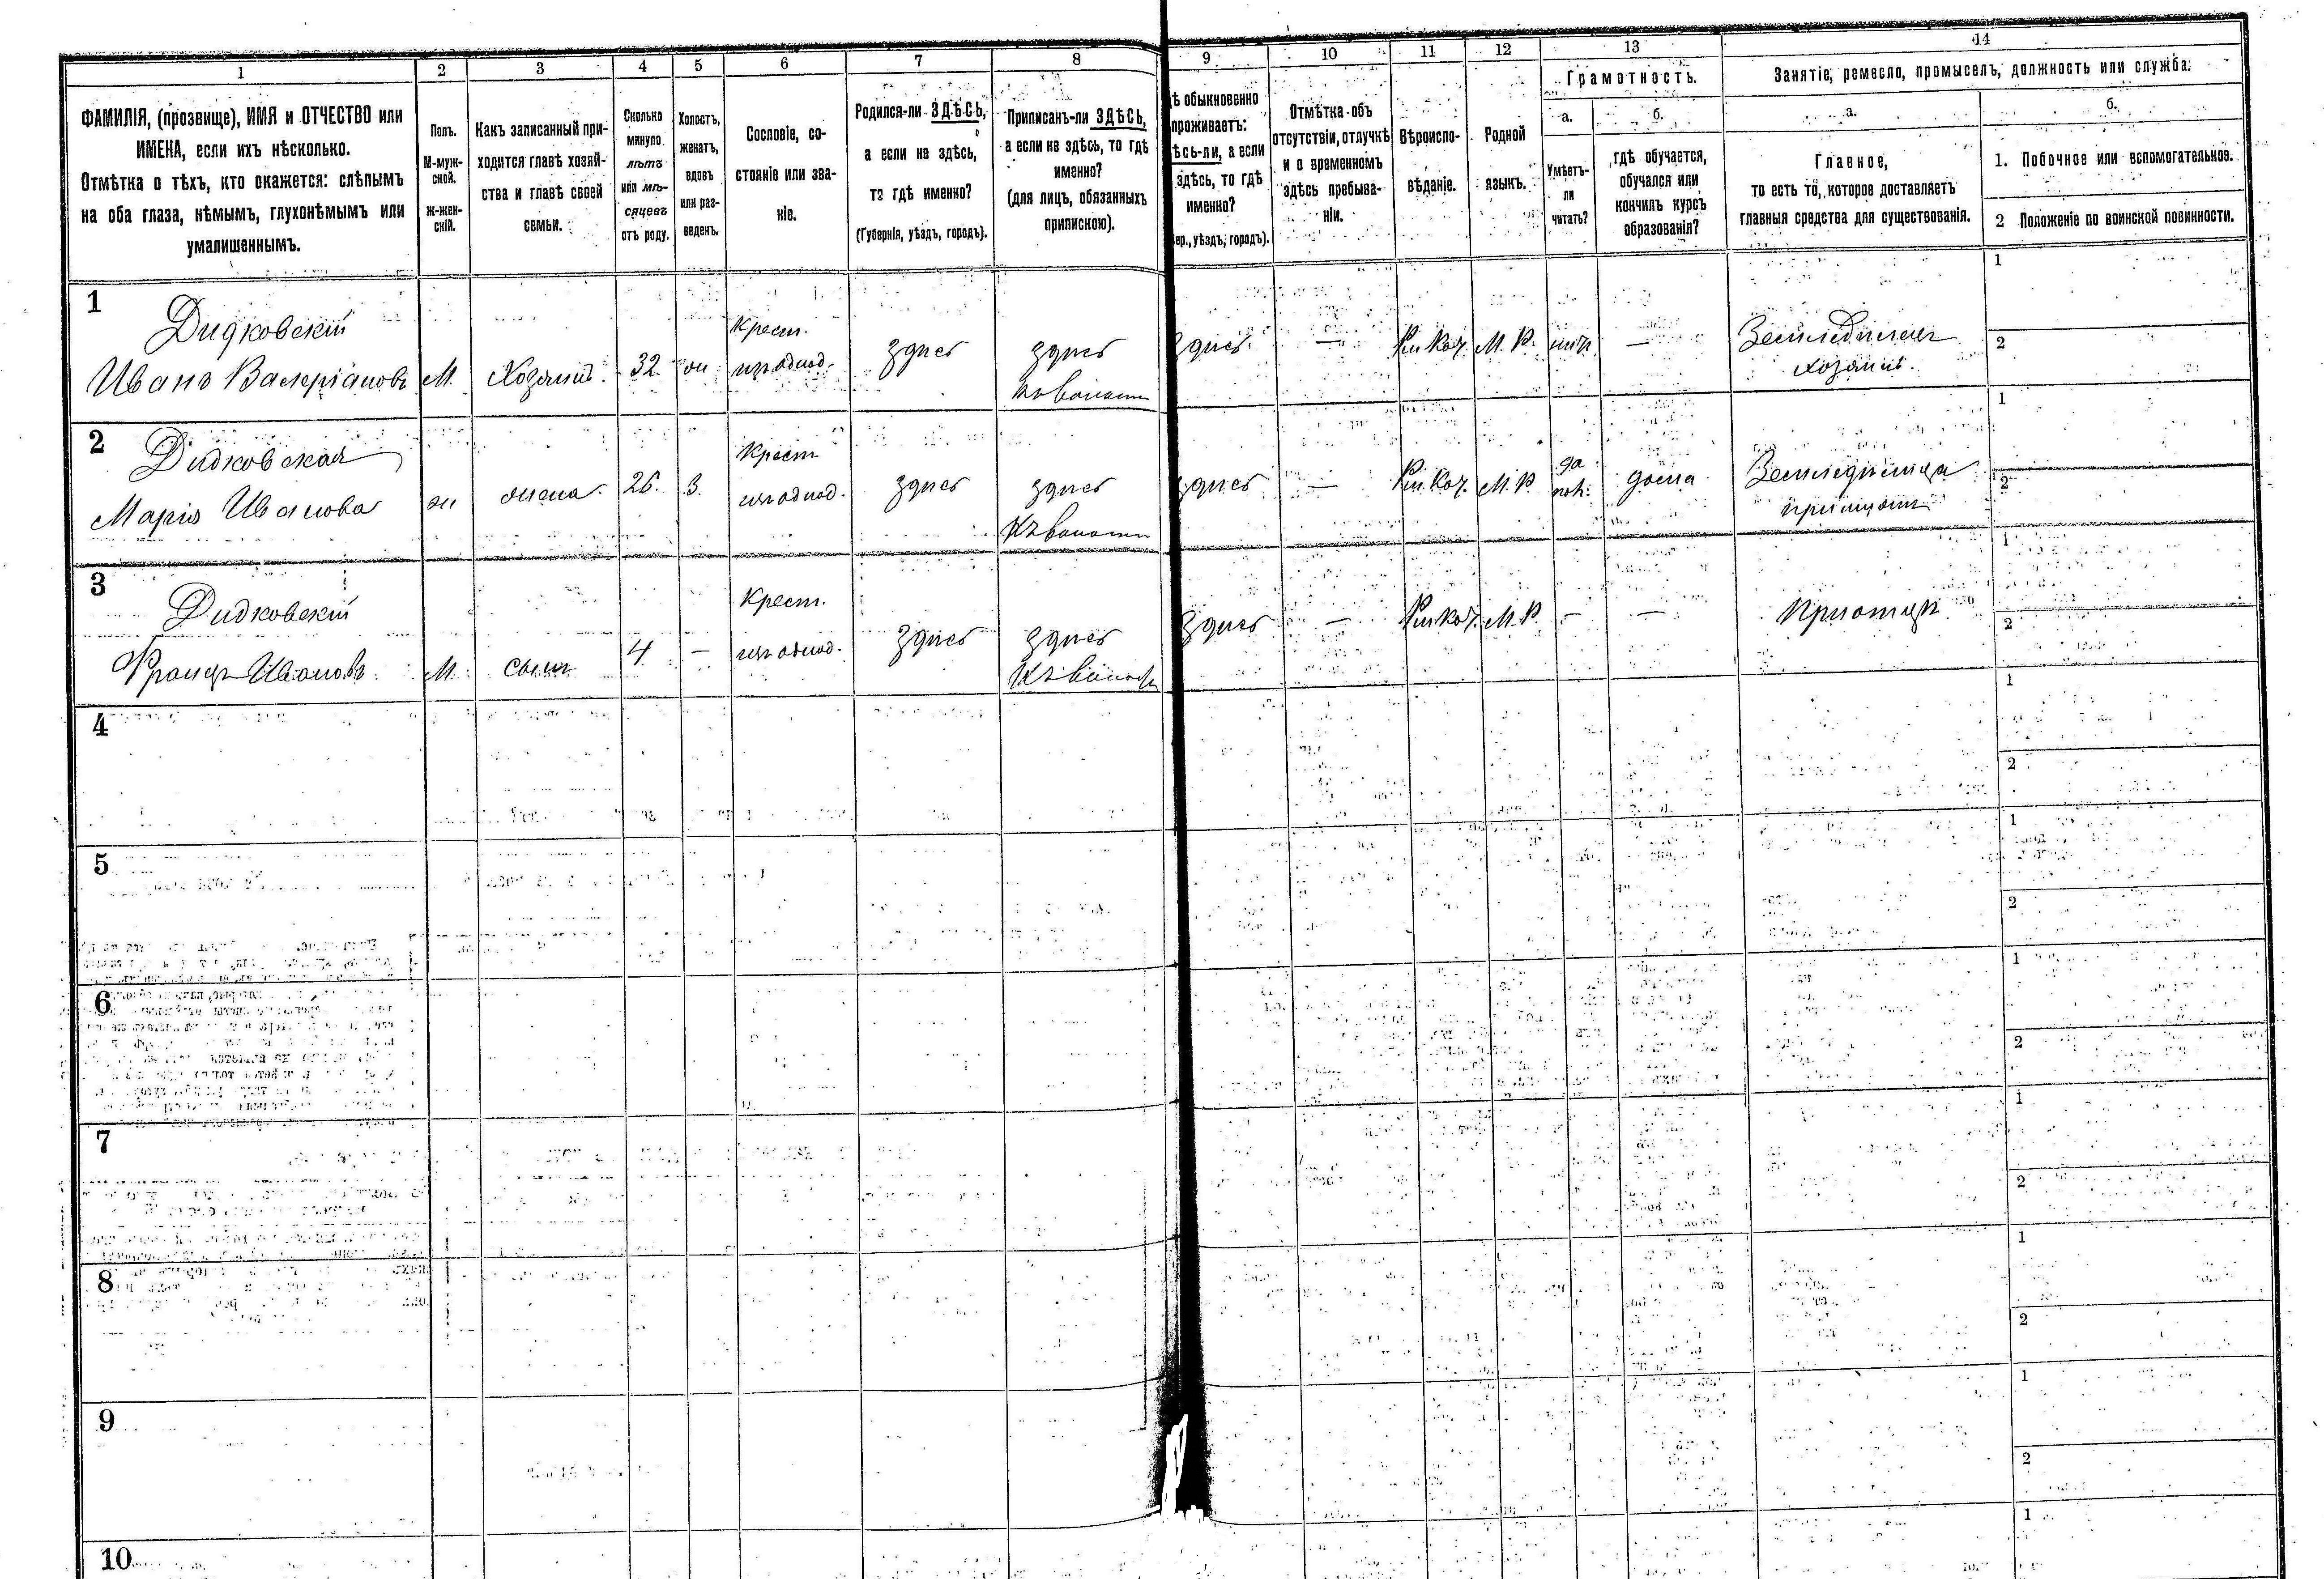 1 2 3 4 5 6 7 8 9 10 11 12 13 14
ФАМИЛІЯ, (прозвище), ИМЯ и ОТЧЕСТВО или
ИМЕНА, если ихъ нѣсколько.
Отмѣтка о тѣхъ, кто окажется: слѣпымъ
на оба глаза, нѣмымъ, глухонѣмымъ или
умалишеннымъ.
Полъ.
М-муж-
ской.
ж-жен-
скій.
Какъ записанный при-
ходится главѣ хозяй-
ства и главѣ своей
семьи.
Сколько
минуло
лѣтъ
или мѣ-
сяцевъ
отъ роду.
Холостъ,
женатъ,
вдовъ
или раз-
веденъ.
Сословіе, со-
стояніе или зва-
ніе.
Родился-ли ЗДѢСЬ,
а если не здѣсь,
то гдѣ именно?
(Губернія, уѣздъ, городъ).
Приписанъ-ли ЗДѢСЬ,
а если не здѣсь, то гдѣ
именно?
(для лицъ, обязанныхъ
припискою).
ѣ обыкновенно
проживаетъ:
ѣсь-ли, а если
здѣсь, то гдѣ
именно?
ер., уѣздъ, городъ).
Отмѣтка объ
отсутствіи, отлучкѣ
и о временномъ
здѣсь пребыва-
ніи.
Вѣроиспо-
вѣданіе.
Родной
языкъ.
Грамотность.
а.
Умѣетъ-
ли
читать?
б.
гдѣ обучается,
обучался или
кончилъ курсъ
образованія?
Занятіе, ремесло, промыселъ, должность или служба.
а.
Главное,
то есть то, которое доставляетъ
главныя средства для существованія.
б.
1. Побочное или вспомогательное.
2 Положеніе по воинской повинности.
1
Дидковскій
Иванъ Валеріановъ
М.
Хозяинъ.
32
Крест.
изъ однод.
здѣсь
здѣсь
къ волости
здѣсь.
—
Рим. Кат.
М. Р.
нѣтъ
—
Земледѣлецъ
хозяинъ.
1
2
2
Дидковская
Марія Иванова
ж
жена.
26.
З.
Крест
изъ однод.
здѣсь
здѣсь
Къ волости
здѣсь
—
Рим. Кат.
М. Р.
да
дома
Земледѣлица
1
2
3
Дидковскій
Францъ Ивановъ
М.
сынъ
4
—
Крест.
изъ однод.
здѣсь
здѣсь
Къ волости
здѣсь
—
Рим. Кат.
М. Р.
—
—
При отцѣ
1
2
4
1
2
5
1
2
6
1
2
7
1
2
8
1
2
9
1
2
10
1